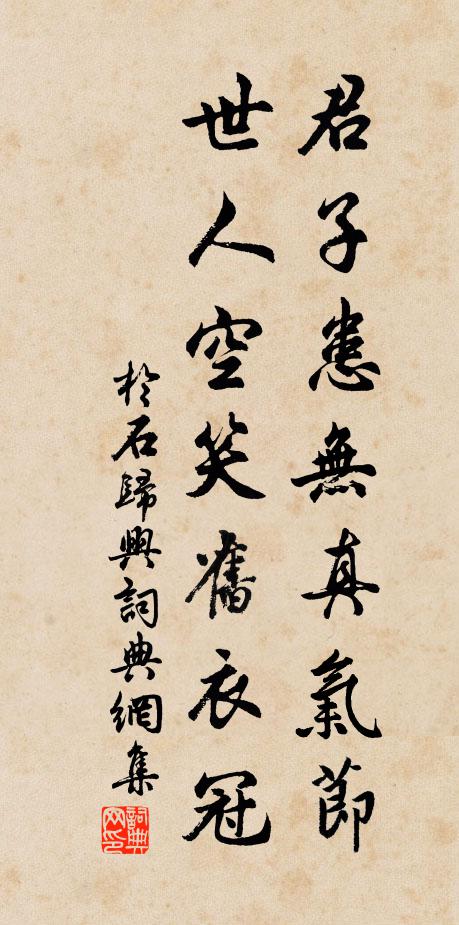 君子患無真氣節
世人空笑舊衣冠
於石歸興詞典網集
詞典網印